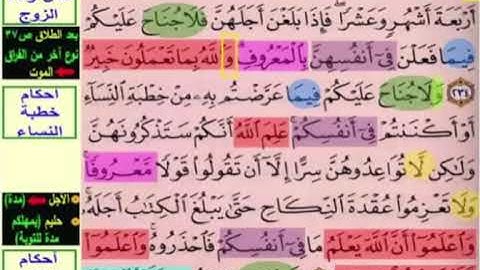 أَرْبَعَةَ أَشْهُرٍ وَعَشْرًا ۖ فَإِذَا بَلَغْنَ أَجَلَهُنَّ فَلَا جُنَاحَ عَلَيْكُمْ
فِيمَا فَعَلْنَ فِىٓ أَنفُسِهِنَّ بِالْمَعْرُوفِ ۗ وَاللَّهُ بِمَا تَعْمَلُونَ خَبِيرٌ
٢٣٤ وَلَا جُنَاحَ عَلَيْكُمْ فِيمَا عَرَّضْتُم بِهِۦ مِنْ خِطْبَةِ النِّسَآءِ
أَوْ أَكْنَنتُمْ فِىٓ أَنفُسِكُمْ ۚ عَلِمَ اللَّهُ أَنَّكُمْ سَتَذْكُرُونَهُنَّ
وَلَٰكِن لَّا تُوَاعِدُوهُنَّ سِرًّا إِلَّآ أَن تَقُولُوا۟ قَوْلًا مَّعْرُوفًا ۚ
وَلَا تَعْزِمُوا۟ عُقْدَةَ النِّكَاحِ حَتَّىٰ يَبْلُغَ الْكِتَابُ أَجَلَهُۥ ۚ
وَاعْلَمُوٓا۟ أَنَّ اللَّهَ يَعْلَمُ مَا فِىٓ أَنفُسِكُمْ فَاحْذَرُوهُ ۚ وَاعْلَمُوٓا۟
الزوج
بعد الطلاق ص٣٧
نوع آخر من الفراق
الموت
أحكام
خطبة
النساء
الأجل (مدة)
حليم (يمهلكم
مدة للتوبة)
أحكام